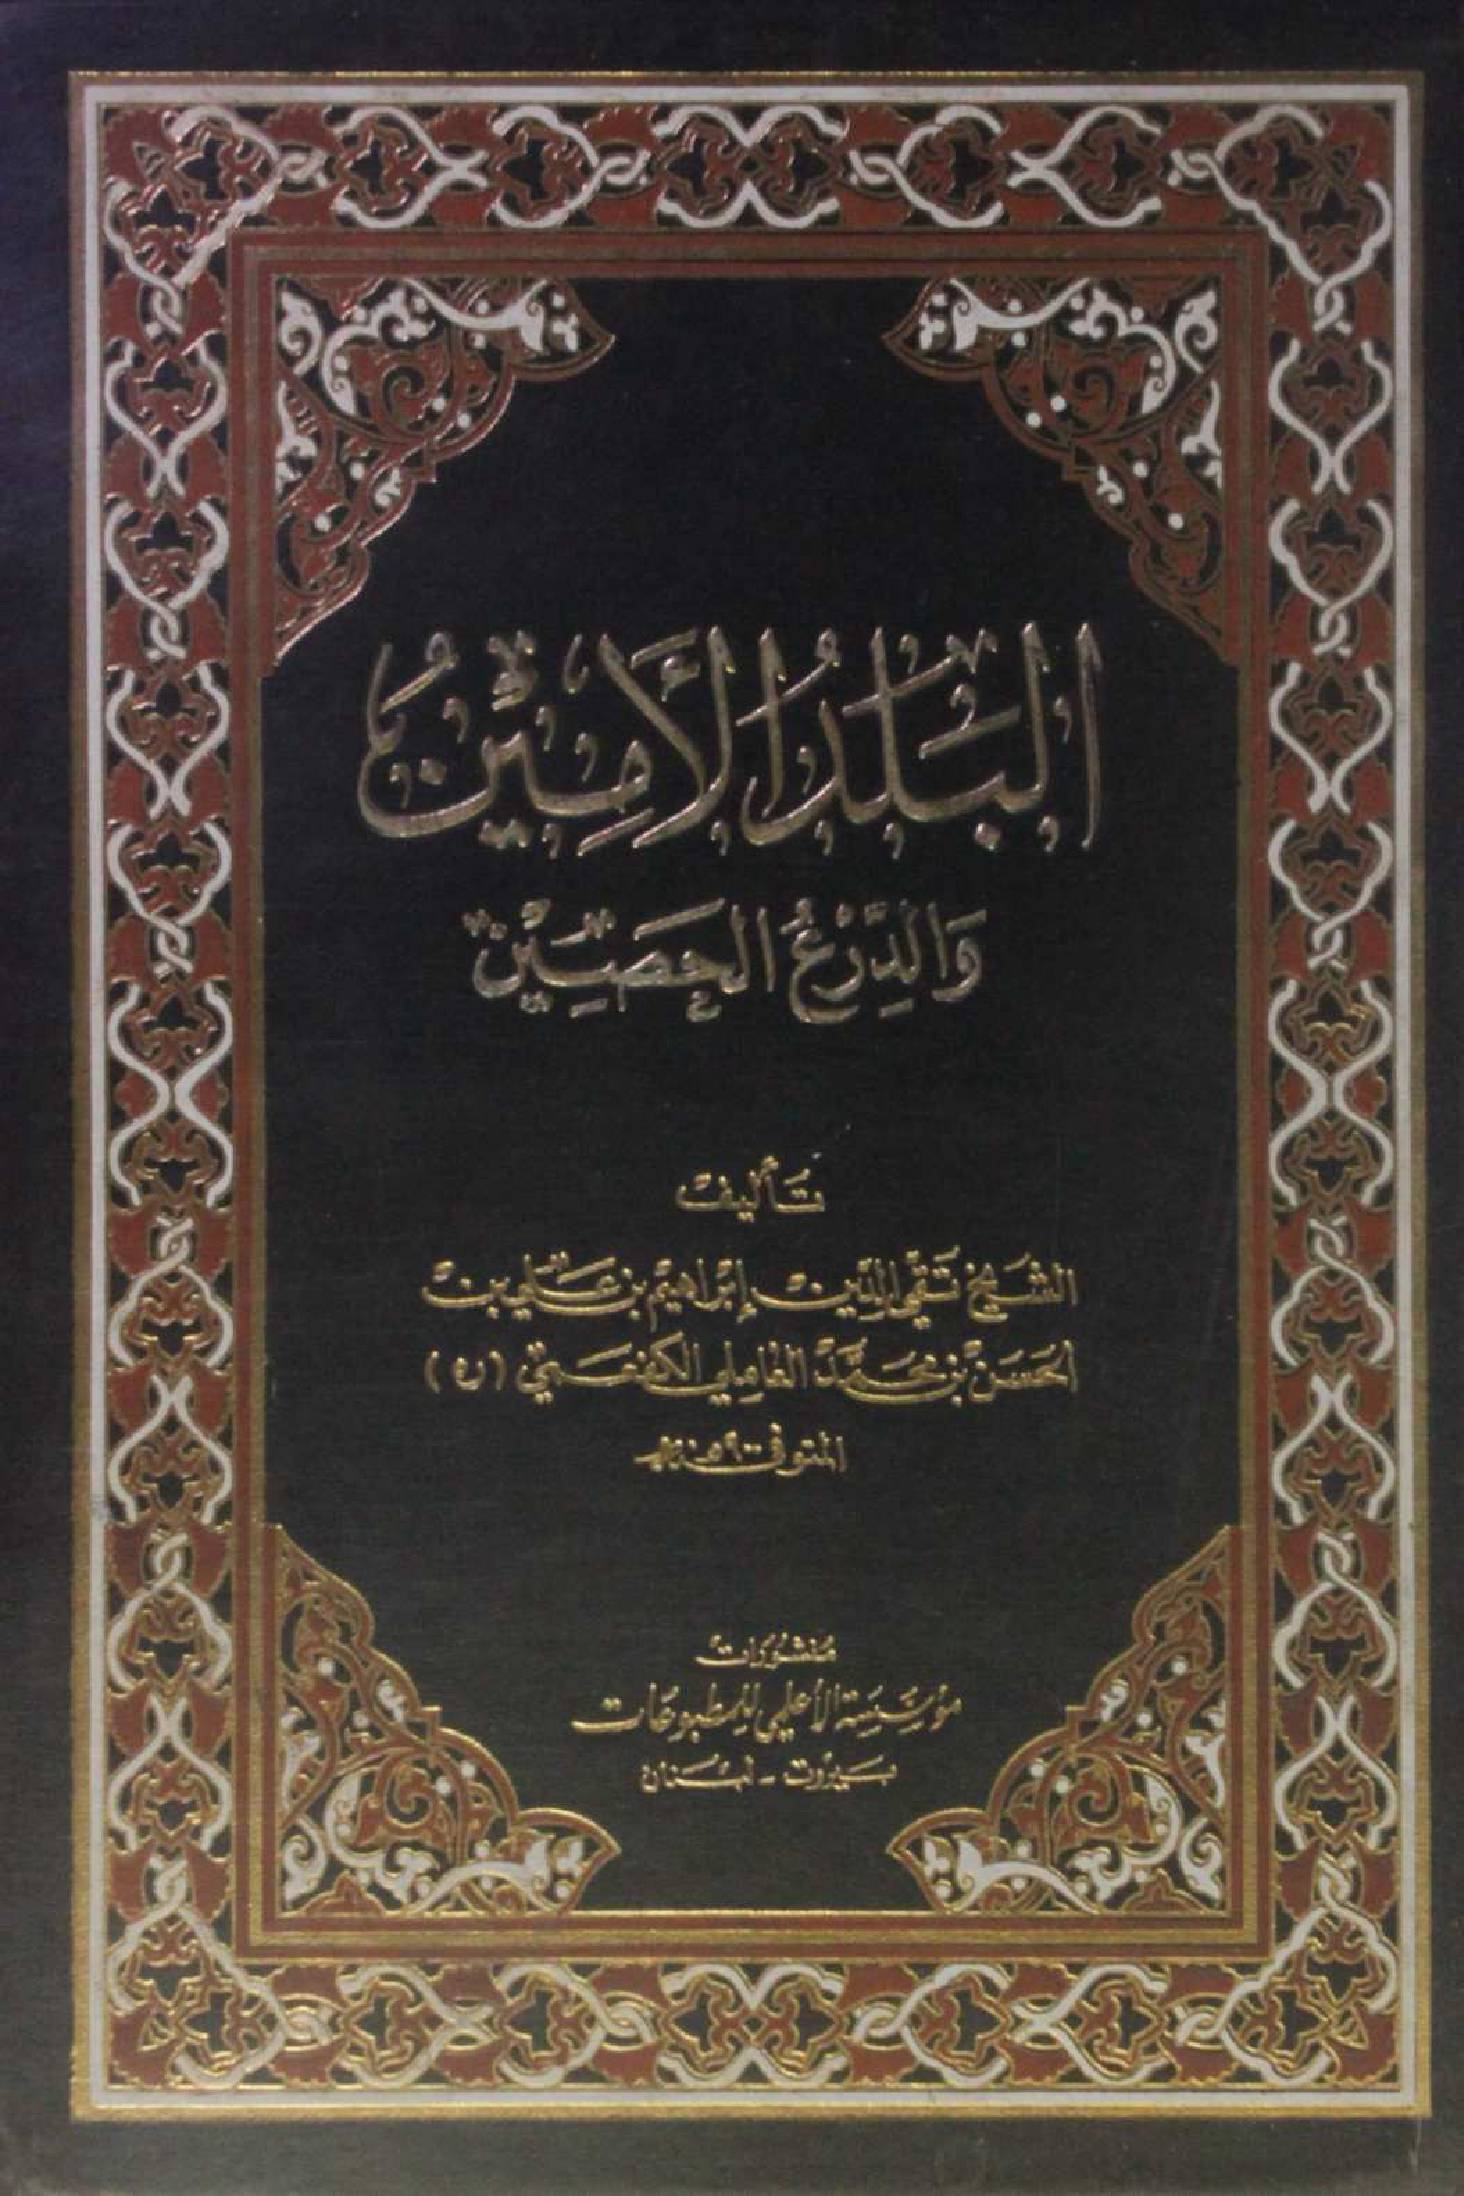 البَلَدُ الأَمِيْنُ
وَالدِّرْعُ الحَصِيْن
تَأليف
الشَيخ تَقي الدّين إبْراهيم بن عَلي بن
الحَسَن بن محَمَّد العَامِلي الكفعَمي (ره)
المتوفى ٩٠٥هـ
مَنشورَات
مؤسَّسَة الأعلمي للمطبوعَات
بَيروت - لبْنان